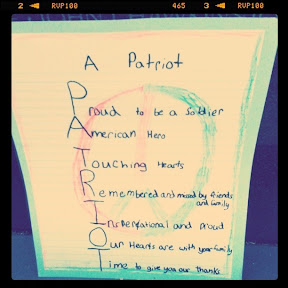 2 RVP100 465 3 RVP100
A Patriot
Proud to be a Soldier
American Hero
Touching Hearts
Remembered and missed by friends
and family
and proud
Our Hearts are with your family
Time to give you our thanks